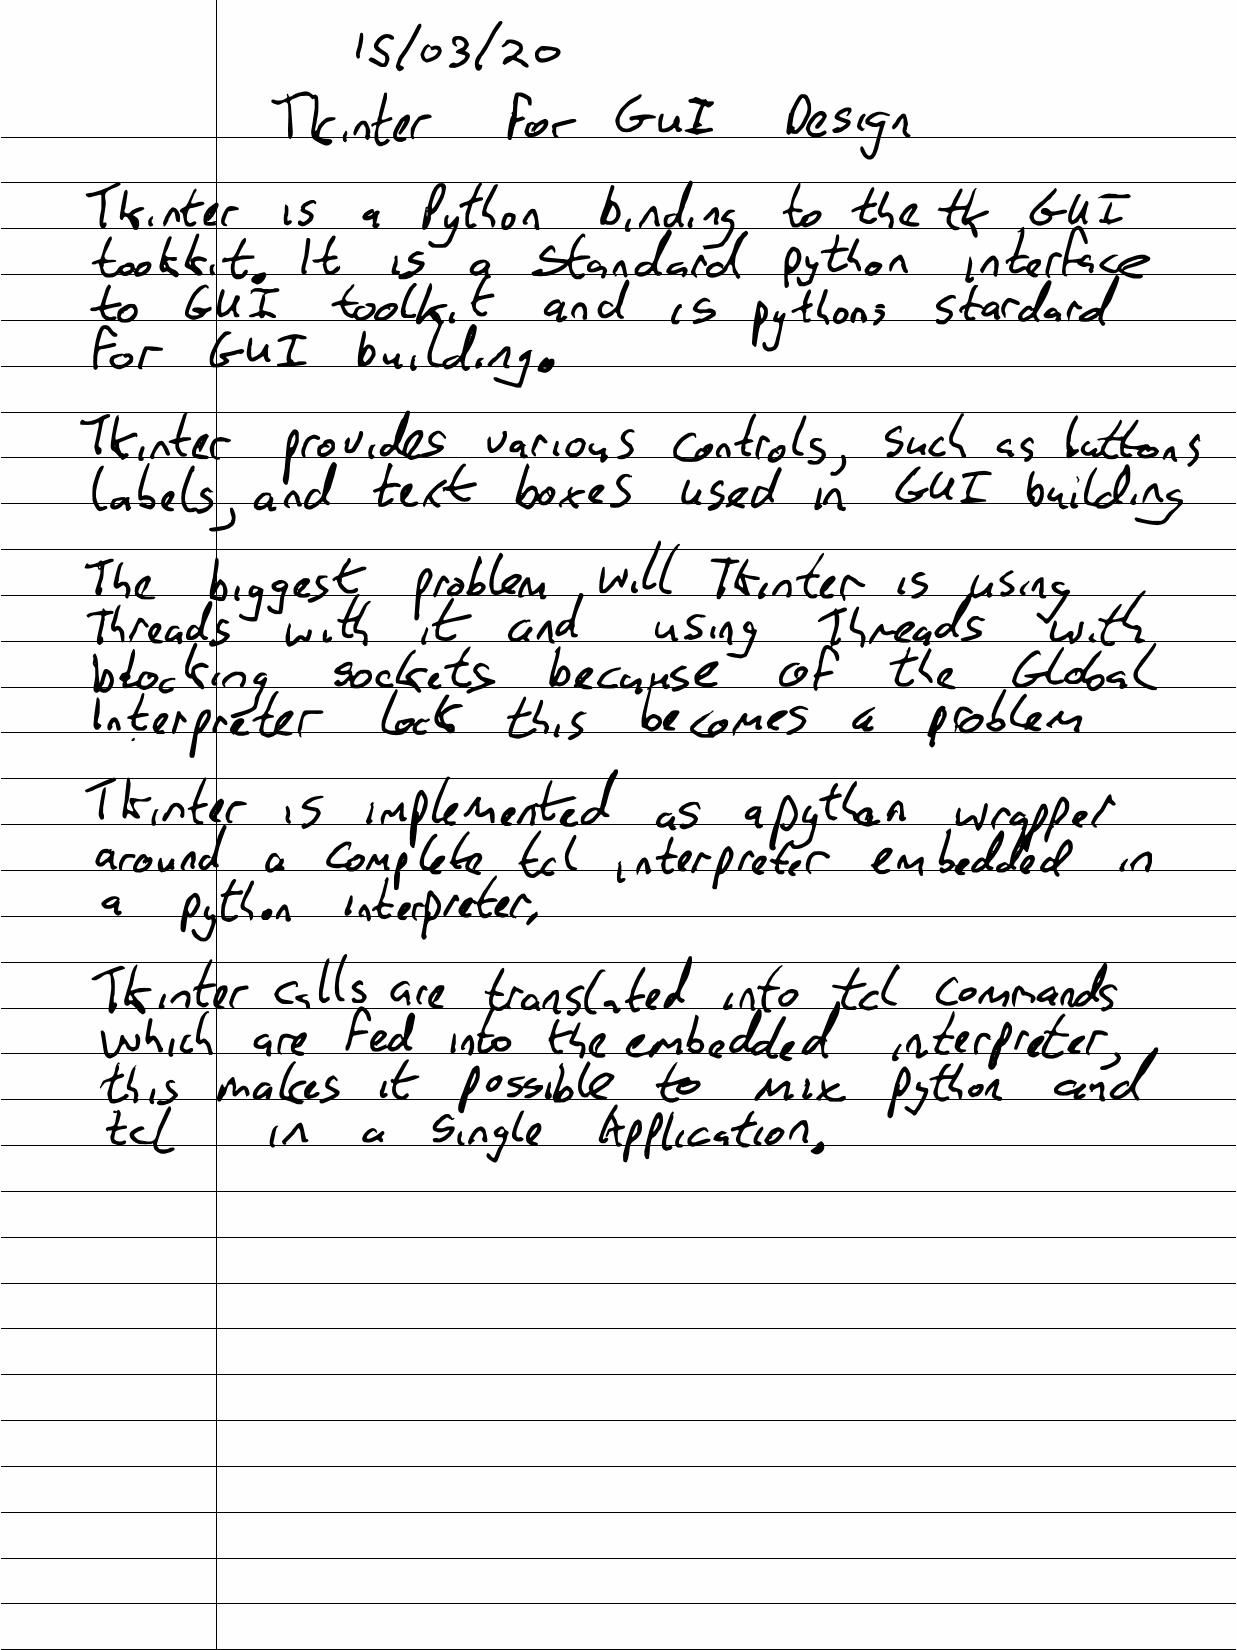 15/03/20
Tkinter For GUI Design
Tkinter is a Python binding to the tk GUI
tookkit. It is a standard python interface
to GUI toolkit and is pythons stardard
for GUI building.
Tkinter provides various controls, such as buttons
labels, and text boxes used in GUI building
The biggest problem will Tkinter is using
Threads with it and using Threads with
blocking sockets because of the Global
Interpreter lock this becomes a problem
Tkinter is implemented as a python wrapper
around a complete tcl interpreter embedded in
a python interpreter,
Tkinter calls are translated into tcl commands
which are fed into the embedded interpreter,
this makes it possible to mix python and
tcl in a single Application.